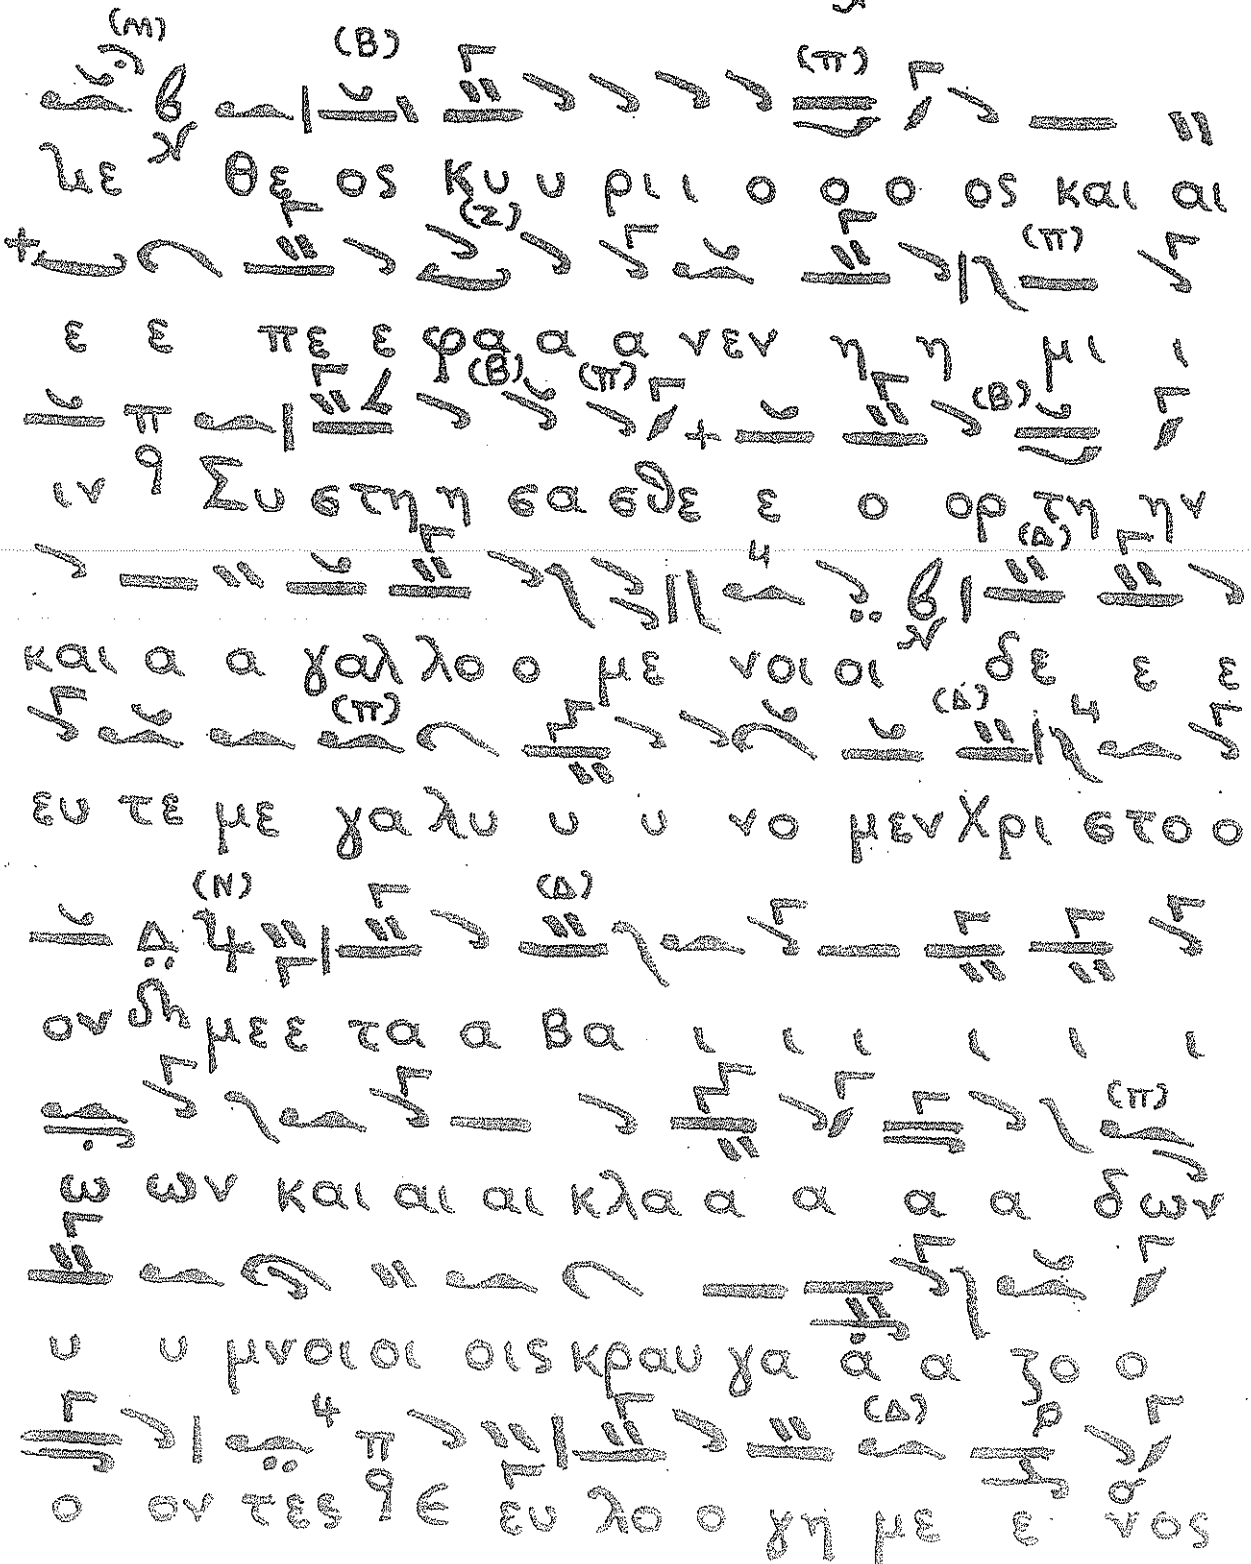 Νε Θε ος Κυ υ ρι ι ο ο ο ος και αι
ε ε πε ε φα α α νεν η η μι ι
ιν Συ στη η σα σθε ε ο ορ τη ην
και α α γαλ λο ο με νοι οι δε ε ε
ευ τε με γα λυ υ υ νο μεν Χρι στο ο
ον δη με ε τα α Βα ι ι ι ι ι ι
ω ων και αι αι κλα α α α α δων
υ υ μνοι οι οις κραυ γα α α ζο ο
ο ον τες Ε ευ λο ο γη με ε νος